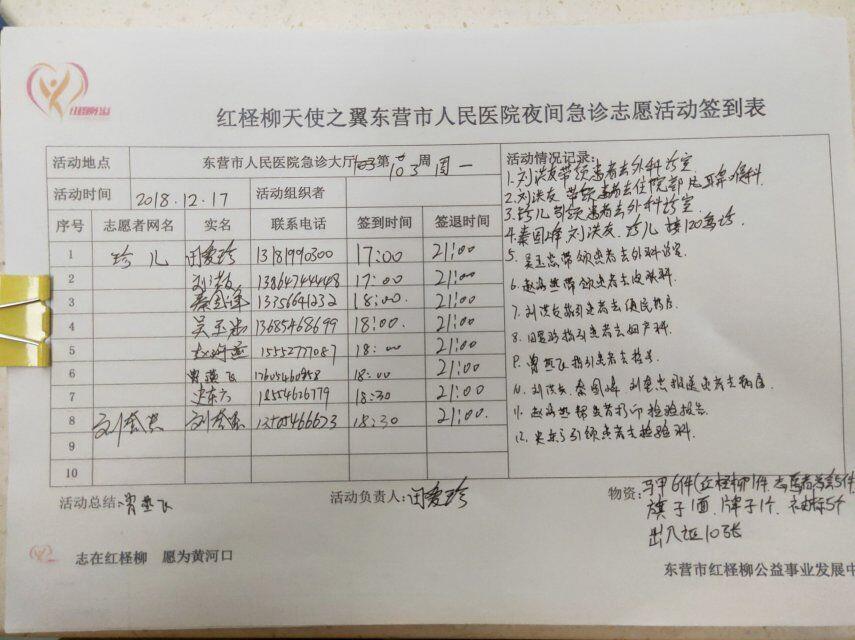 红柽柳天使之翼东营市人民医院夜间急诊志愿活动签到表
活动地点 东营市人民医院急诊大厅 第103周 周一
活动时间 2018.12.17 活动组织者
序号 志愿者网名 实名 联系电话 签到时间 签退时间
1 玲儿 闫爱玲 13181990300 17:00 21:00
2 刘洪友 13864744448 17:00 21:00
3 秦国峰 13356641232 18:00 21:00
4 吴玉忠 13685468699 18:00 21:00
5 赵海燕 15552777087 18:00 21:00
6 曾燕飞 18:00 21:00
7 18:30 21:00
8 18:30 21:00
9
10
活动情况记录:
1.刘洪友带领患者去外科诊室
2.刘洪友带领患者去住院部
3.玲儿引领患者去外科诊室
4.秦国峰 刘洪友 玲儿 接120急诊
5.吴玉忠带领患者去外科诊室
6.赵海燕带领患者去皮肤科.
7.刘洪友指引患者去
8.指引患者去妇产科.
9.曾燕飞指引患者去
10.刘洪友 秦国峰 患者去病房
11.赵海燕帮患者打印检验报告.
12.引领患者去检验科.
活动总结:曾燕飞 活动负责人:闫爱玲 物资:马甲6件(红柽柳1件 5件
旗子1面.牌子1个.袖标5个
出入证10张
志在红柽柳 愿为黄河口
东营市红柽柳公益事业发展中